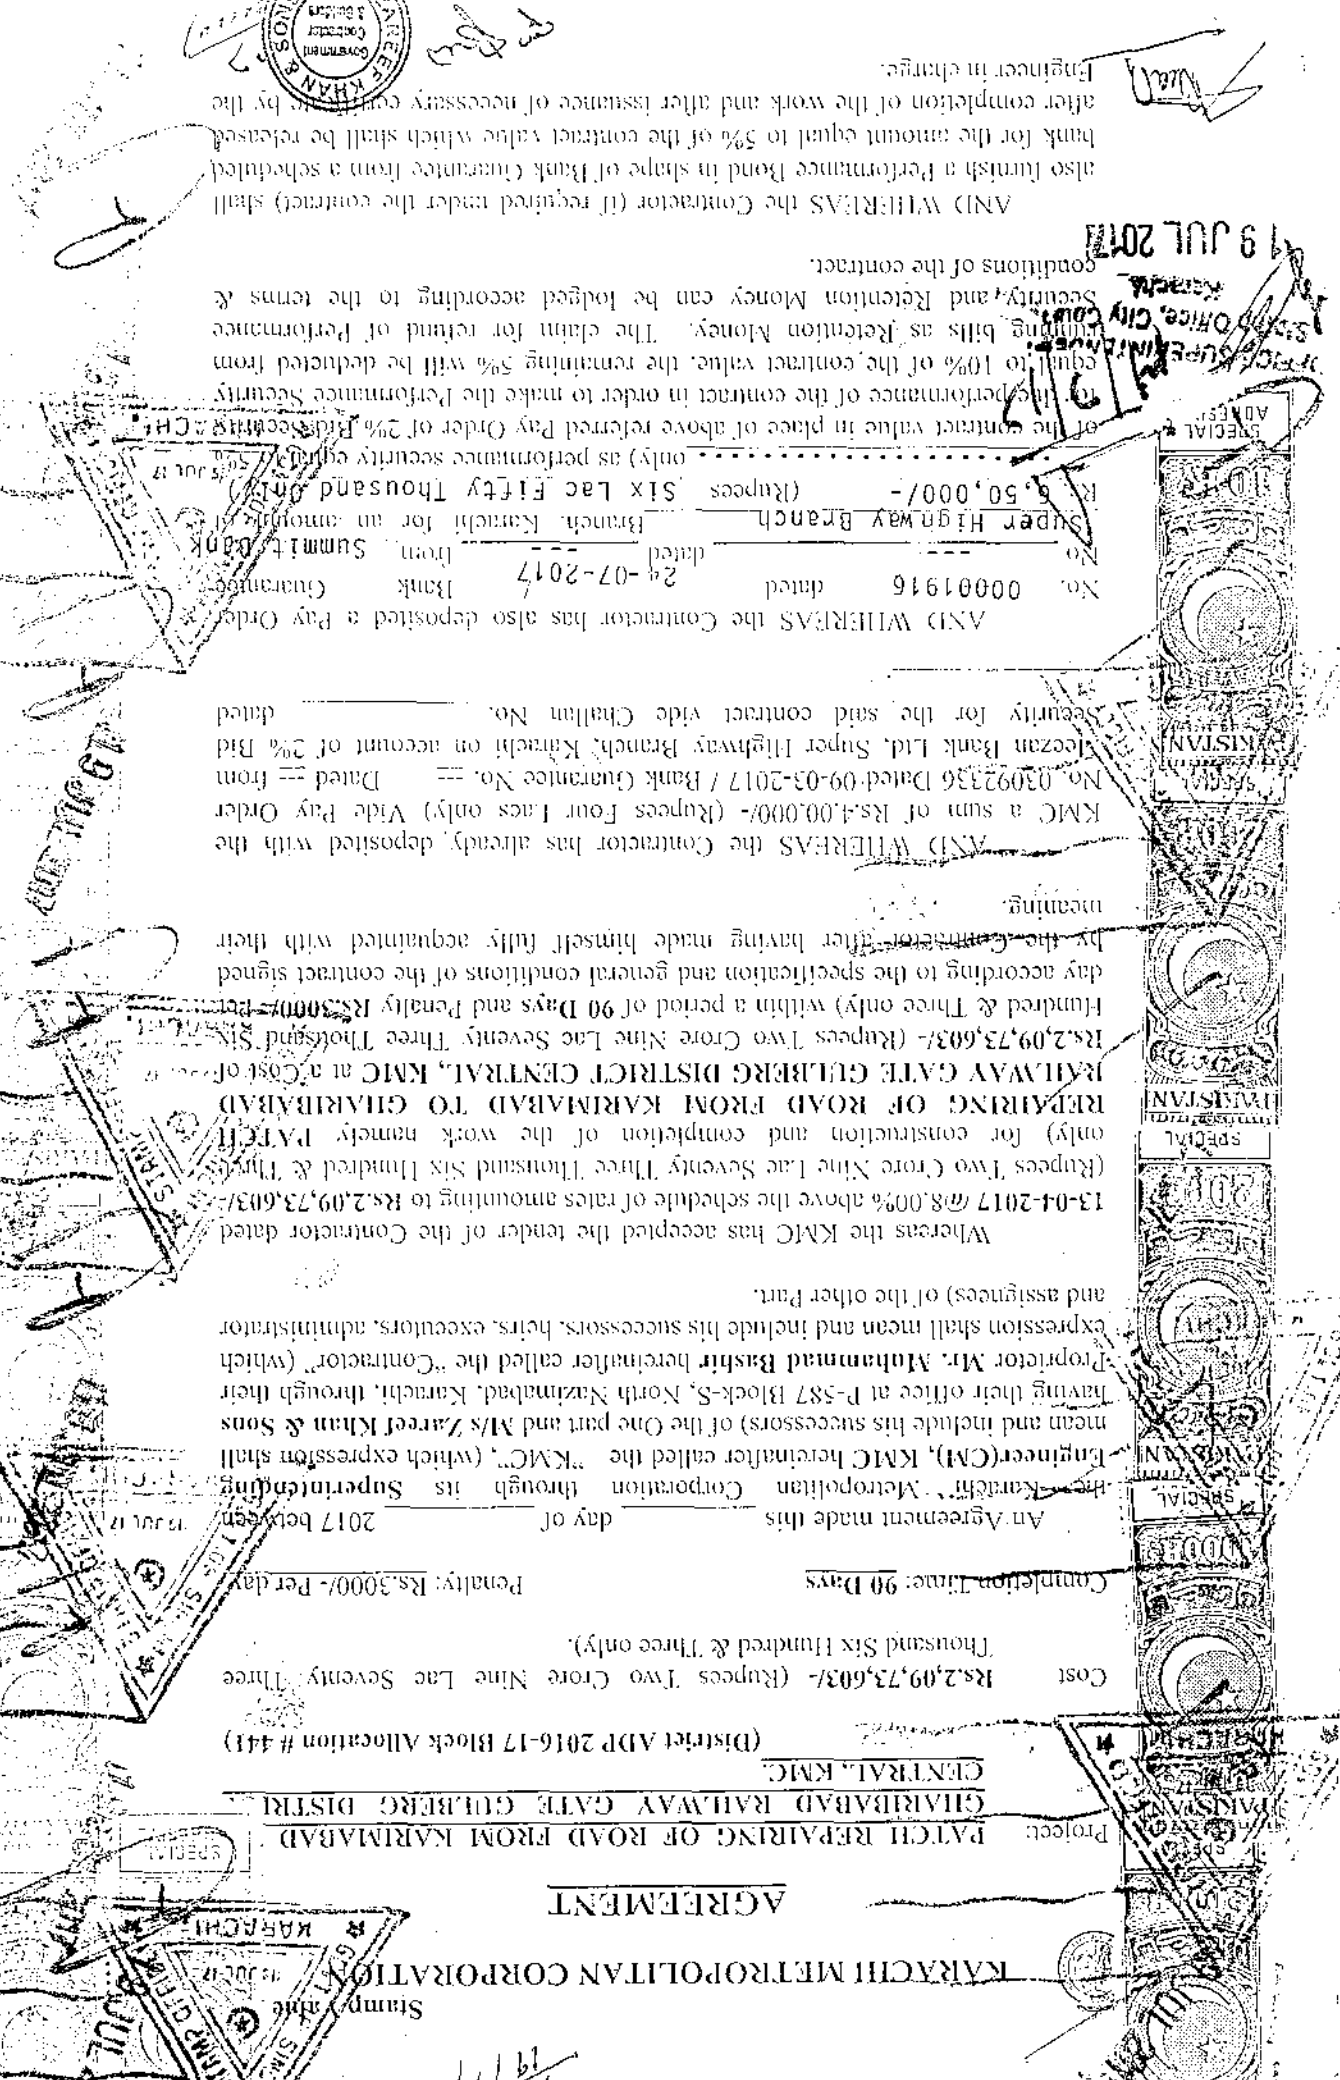 Stamp Value
KARACHI METROPOLITAN CORPORATION
AGREEMENT
Project: PATCH REPAIRING OF ROAD FROM KARIMABAD
GHARIBABAD RAILWAY GATE GULBERG DISTRI
CENTRAL, KMC.
(District ADP 2016-17 Block Allocation # 441)
Cost Rs.2,09,73,603/- (Rupees Two Crore Nine Lac Seventy Three
Thousand Six Hundred & Three only).
Completion Time: 90 Days Penalty: Rs.3000/- Per day
An Agreement made this day of 2017 between
the Karachi Metropolitan Corporation through its Superintending
Engineer(CM), KMC hereinafter called the "KMC", (which expression shall
mean and include his successors) of the One part and M/s Zareef Khan & Sons
having their office at P-587 Block-S, North Nazimabad, Karachi, through their
Proprietor Mr. Muhammad Bashir hereinafter called the "Contractor" (which
expression shall mean and include his successors, heirs, executors, administrator
and assignees) of the other Part.
Whereas the KMC has accepted the tender of the Contractor dated
13-04-2017 @8.00% above the schedule of rates amounting to Rs.2,09,73,603/-
(Rupees Two Crore Nine Lac Seventy Three Thousand Six Hundred & Three
only) for construction and completion of the work namely PATCH
REPAIRING OF ROAD FROM KARIMABAD TO GHARIBABAD
RAILWAY GATE GULBERG DISTRICT CENTRAL, KMC at a Cost of
Rs.2,09,73,603/- (Rupees Two Crore Nine Lac Seventy Three Thousand Six
Hundred & Three only) within a period of 90 Days and Penalty Rs.3000/- Per
day according to the specification and general conditions of the contract signed
by the Contractor after having made himself fully acquainted with their
meaning.
AND WHEREAS the Contractor has already deposited with the
KMC a sum of Rs.4,00,000/- (Rupees Four Lacs only) Vide Pay Order
No. 03092336 Dated 09-03-2017 / Bank Guarantee No. -- Dated -- from
Meezan Bank Ltd, Super Highway Branch, Karachi on account of 2% Bid
Security for the said contract vide Challan No. dated
AND WHEREAS the Contractor has also deposited a Pay Order
No. 00001916 dated 24-07-2017 Bank Guarantee
No --- dated --- from Summit Bank
Super Highway Branch Branch, Karachi for an amount of
Rs. 6,50,000/- (Rupees Six Lac Fifty Thousand Only)
only) as performance security equal to 5%
of the contract value in place of above referred Pay Order of 2% Bid Security
for the performance of the contract in order to make the Performance Security
equal to 10% of the contract value, the remaining 5% will be deducted from
running bills as Retention Money. The claim for refund of Performance
Security and Retention Money can be lodged according to the terms &
conditions of the contract.
AND WHEREAS the Contractor (if required under the contract) shall
also furnish a Performance Bond in shape of Bank Guarantee from a scheduled
bank for the amount equal to 5% of the contract value which shall be released
after completion of the work and after issuance of necessary certificate by the
Engineer in charge.
OFFICE SUPERINTENDENT
Stamp Office, City Court
Karachi
19 JUL 2017
ZAREEF KHAN & SONS
Government
Contractor
& Builders
SPECIAL
PAKISTAN
KARACHI
19 JUL 17